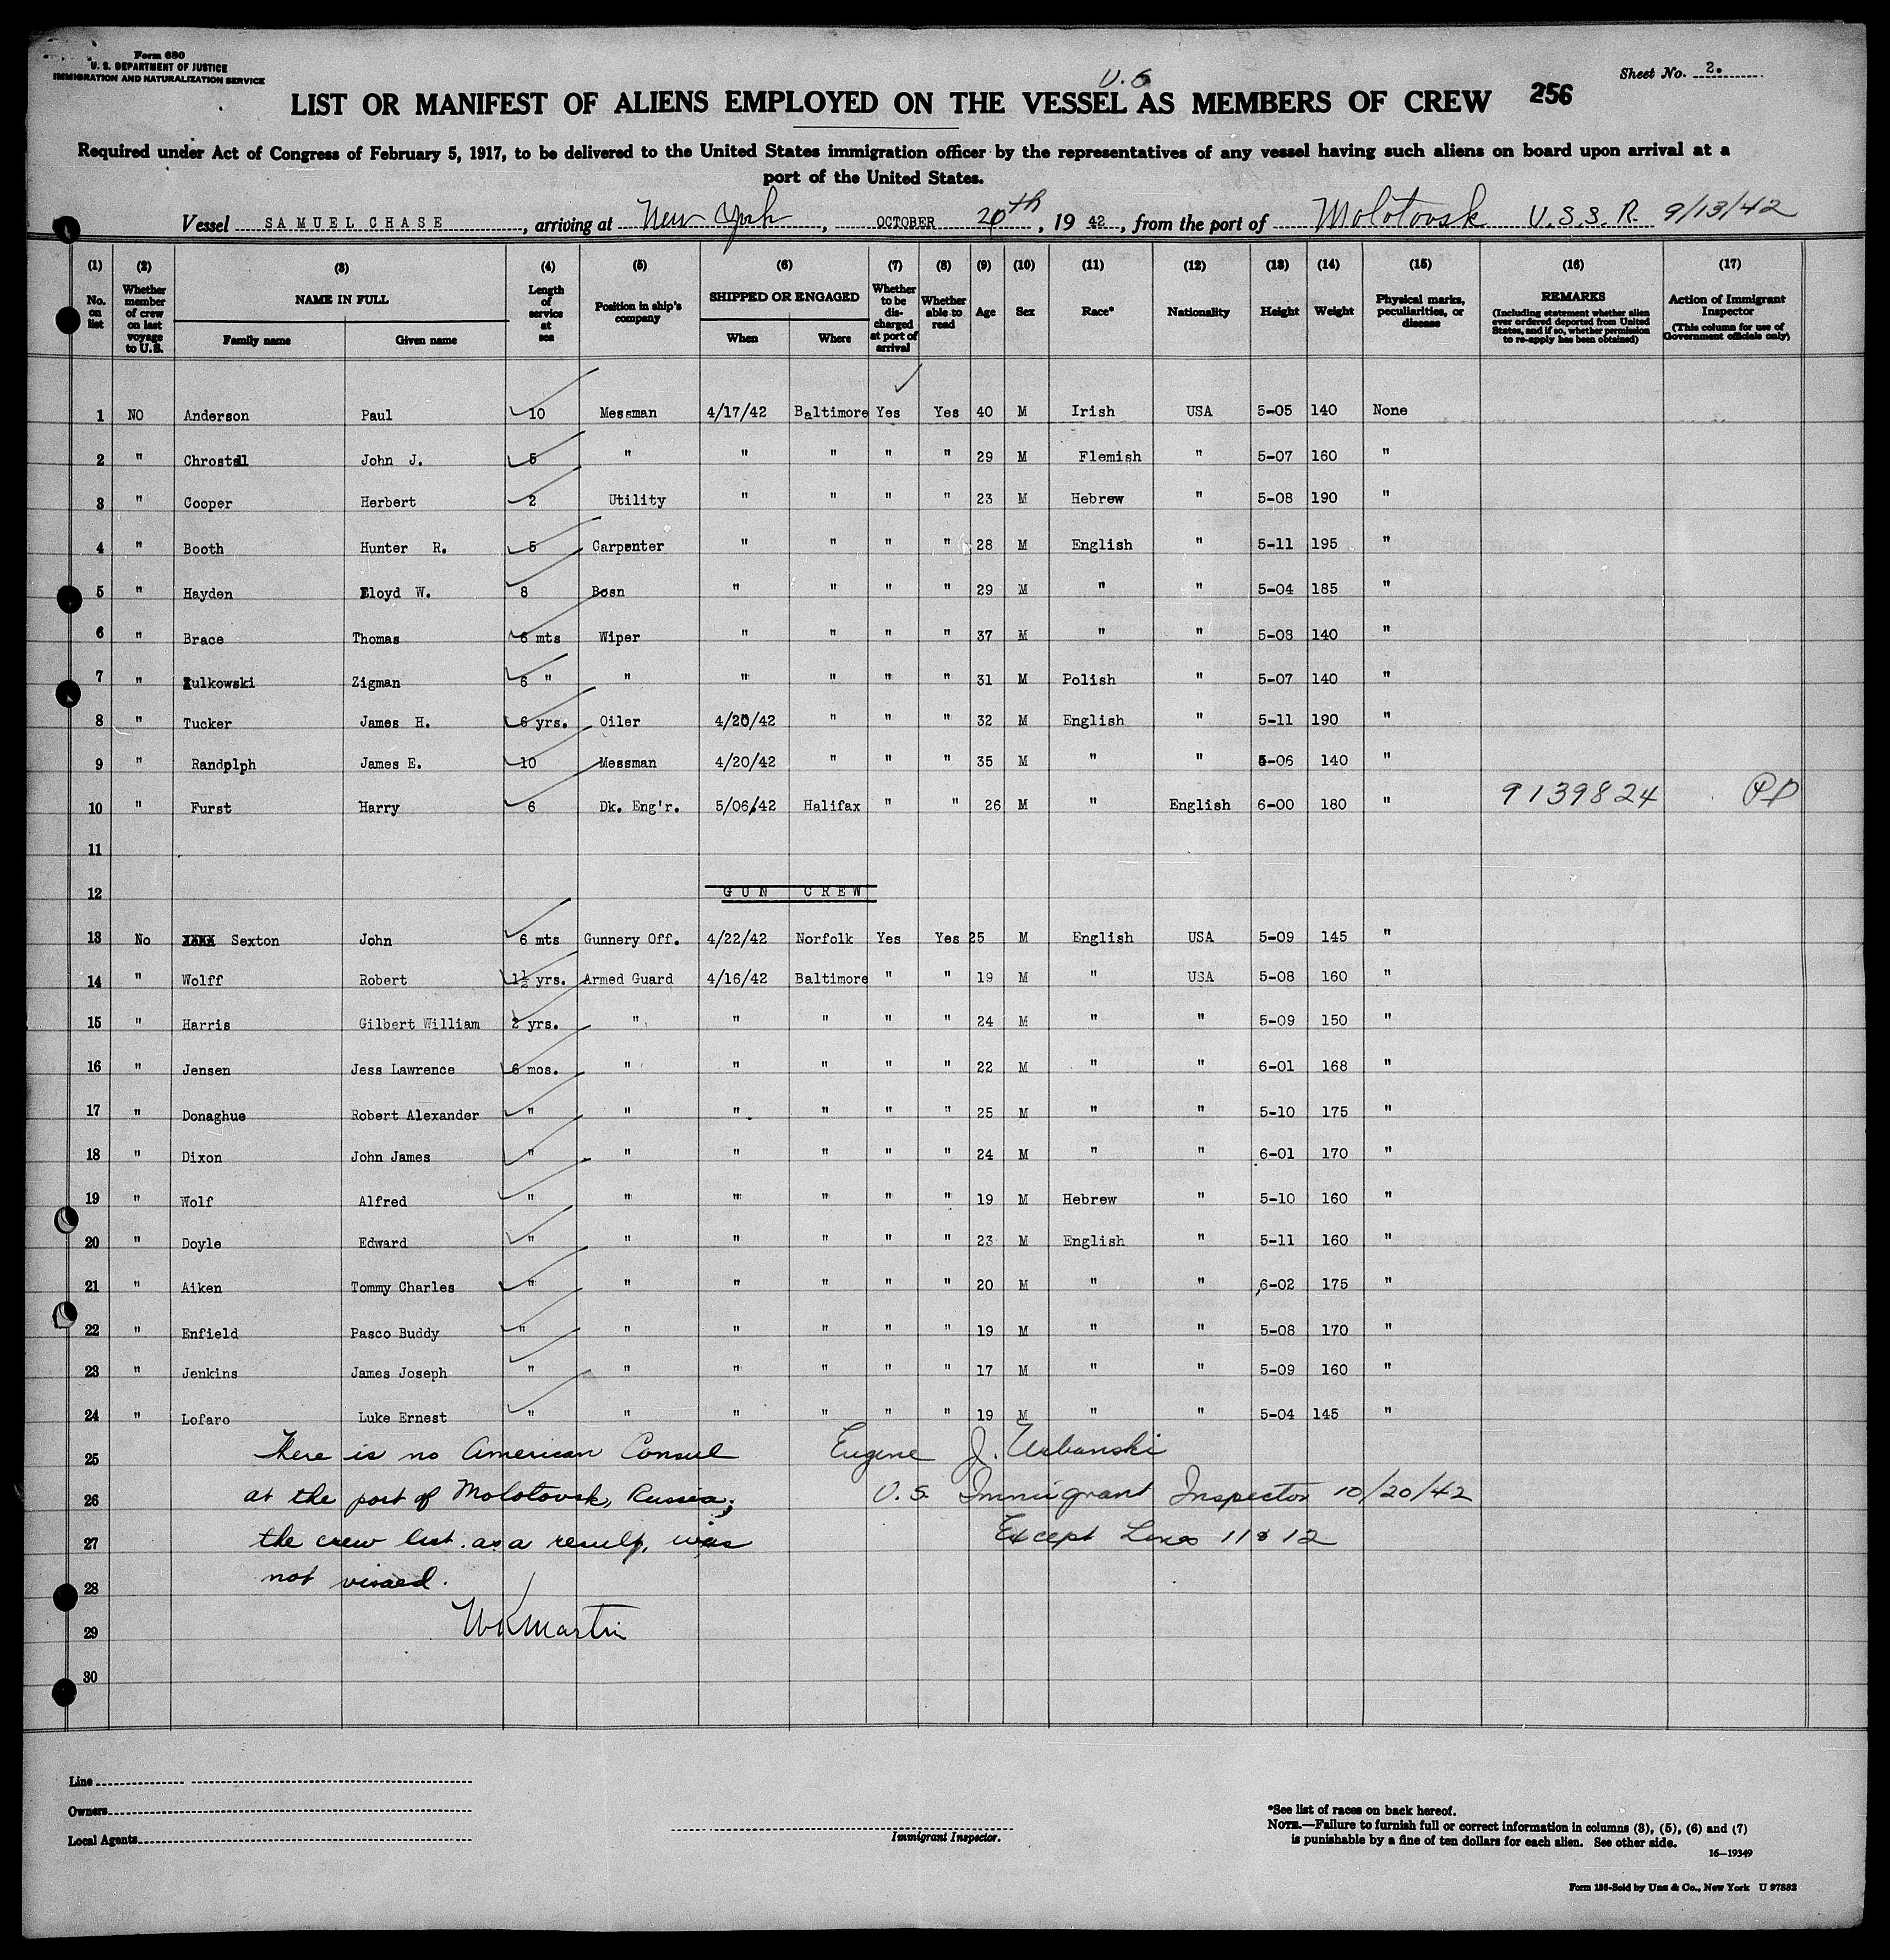 Form 680
U. S. DEPARTMENT OF JUSTICE
IMMIGRATION AND NATURALIZATION SERVICE
Sheet No. 2.
U. S
LIST OR MANIFEST OF ALIENS EMPLOYED ON THE VESSEL AS MEMBERS OF CREW 256
Required under Act of Congress of February 5, 1917, to be delivered to the United States immigration officer by the representatives of any vessel having such aliens on board upon arrival at a
port of the United States.
Vessel SAMUEL CHASE, arriving at New York, OCTOBER 20th, 19 42, from the port of Molotovsk U.S.S.R. 9/13/42
(1) No. on list (2) Whether member of crew on last voyage to U.S. (3) NAME IN FULL Family name Given name (4) Length of service at sea (5) Position in ship's company (6) SHIPPED OR ENGAGED When Where (7) Whether to be discharged at port of arrival (8) Whether able to read (9) Age (10) Sex (11) Race* (12) Nationality (13) Height (14) Weight (15) Physical marks, peculiarities, or disease (16) REMARKS (Including statement whether alien ever ordered deported from United States, and if so, whether permission to re-apply has been obtained) (17) Action of Immigrant Inspector (This column for use of Government officials only)
1 NO Anderson Paul 10 Messman 4/17/42 Baltimore Yes Yes 40 M Irish USA 5-05 140 None
2 " Chrostel John J. 5 " " " " " 29 M Flemish " 5-07 160 "
3 " Cooper Herbert 2 Utility " " " " 23 M Hebrew " 5-08 190 "
4 " Booth Hunter R. 5 Carpenter " " " " 28 M English " 5-11 195 "
5 " Hayden Lloyd W. 8 Bosn " " " " 29 M " " 5-04 185 "
6 " Brace Thomas 6 mts Wiper " " " " 37 M " " 5-08 140 "
7 " Zulkowski Zigman 6 " " " " " " 31 M Polish " 5-07 140 "
8 " Tucker James H. 6 yrs. Oiler 4/20/42 " " " 32 M English " 5-11 190 "
9 " Randplph James E. 10 Messman 4/20/42 " " " 35 M " " 5-06 140 "
10 " Furst Harry 6 Dk. Eng'r. 5/06/42 Halifax " " 26 M " English 6-00 180 " 9139824 PP
11
12 GUN CREW
13 No Sexton John 6 mts Gunnery Off. 4/22/42 Norfolk Yes Yes 25 M English USA 5-09 145 "
14 " Wolff Robert 1½ yrs. Armed Guard 4/16/42 Baltimore " " 19 M " USA 5-08 160 "
15 " Harris Gilbert William 2 yrs. " " " " " 24 M " " 5-09 150 "
16 " Jensen Jess Lawrence 6 mos. " " " " " 22 M " " 6-01 168 "
17 " Donaghue Robert Alexander " " " " " " 25 M " " 5-10 175 "
18 " Dixon John James " " " " " " 24 M " " 6-01 170 "
19 " Wolf Alfred " " " " " " 19 M Hebrew " 5-10 160 "
20 " Doyle Edward " " " " " " 23 M English " 5-11 160 "
21 " Aiken Tommy Charles " " " " " " 20 M " " 6-02 175 "
22 " Enfield Pasco Buddy " " " " " " 19 M " " 5-08 170 "
23 " Jenkins James Joseph " " " " " " 17 M " " 5-09 160 "
24 " Lofaro Luke Ernest " " " " " " 19 M " " 5-04 145 "
25 There is no American Consul Eugene J. Urbanski
26 at the port of Molotovsk, Russia; U.S. Immigrant Inspector 10/20/42
27 the crew list, as a result, was Except Lines 11 & 12
28 not visaed.
29 WKMartin
30
Line
Owners
Local Agents
Immigrant Inspector.
*See list of races on back hereof.
NOTE.—Failure to furnish full or correct information in columns (3), (5), (6) and (7)
is punishable by a fine of ten dollars for each alien. See other side.
16—19349
Form 136-Sold by Unz & Co., New York U 97882